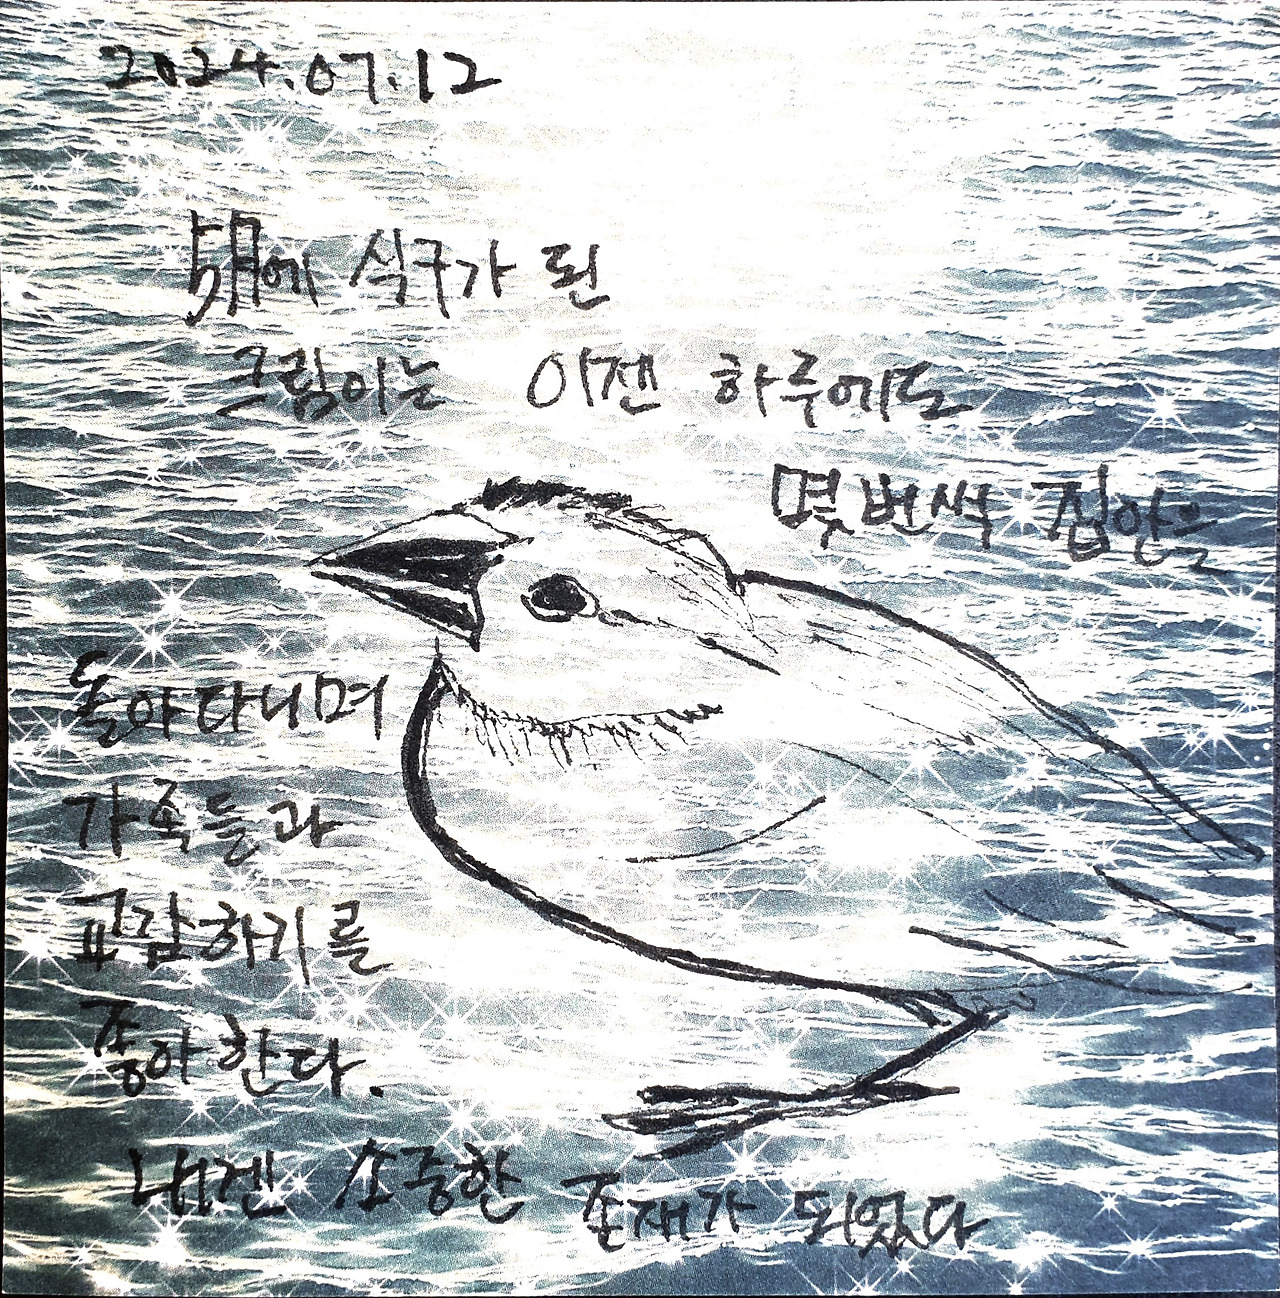 2024.07.12
5月에 식구가 된
크림이는 이젠 하루에도
몇번씩 집안을
돌아다니며
가족들과
교감하기를
좋아한다.
내겐 소중한 존재가 되었다